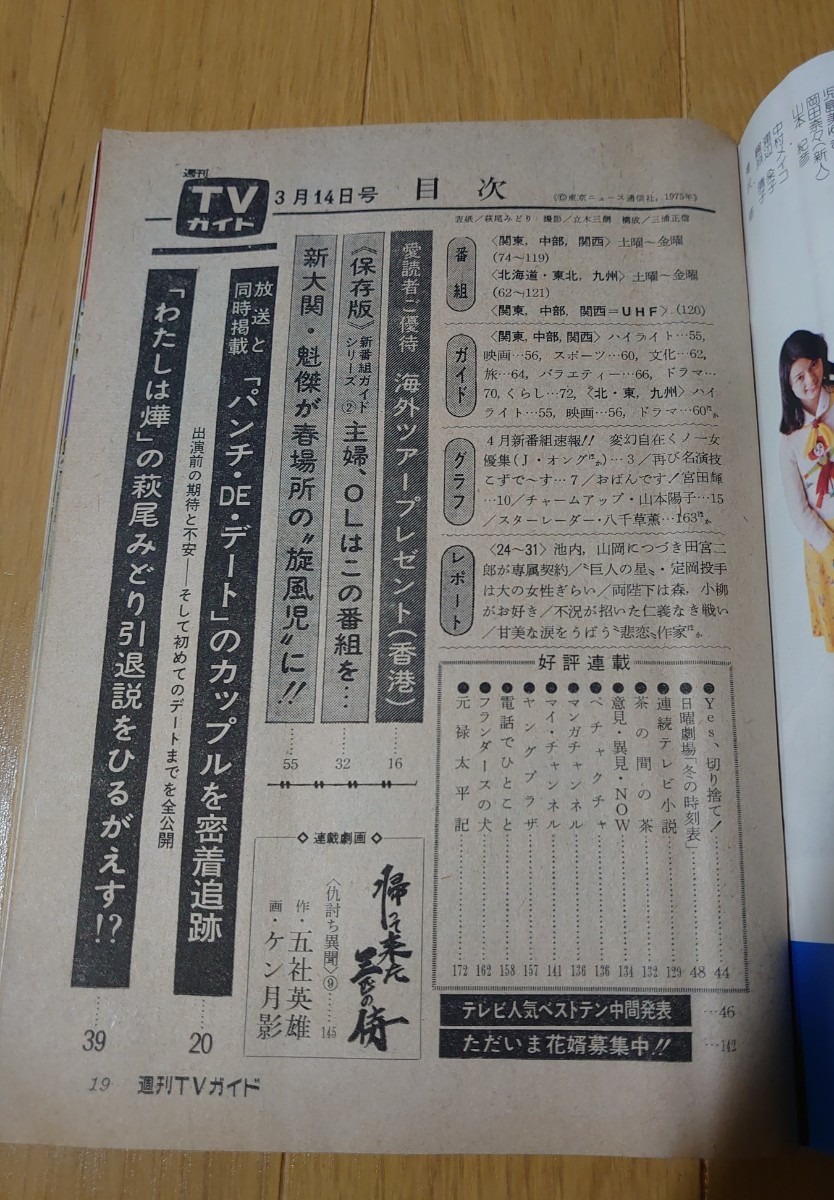 週刊
TV
ガイド
3月14日号
目次
(©東京ニュース通信社, 1975年)
表紙/萩尾みどり 撮影/立木三朗 構成/三浦正信
番組
〈関東, 中部, 関西〉土曜〜金曜
(74〜119)
〈北海道・東北, 九州〉土曜〜金曜
(62〜121)
〈関東, 中部, 関西=UHF〉(120)
ガイド
〈関東, 中部, 関西〉ハイライト…55,
映画…56, スポーツ…60, 文化…62,
旅…64, バラエティー…66, ドラマ…
70, くらし…72, 〈北・東, 九州〉ハイ
ライト…55, 映画…56, ドラマ…60ほか
グラフ
4月新番組速報!! 変幻自在くノ一女
優集(J・オングほか)…3/再び名演技
こずで〜す…7/おばんです!宮田輝
…10/チャームアップ・山本陽子…15
/スターレーダー・八千草薫…163ほか
レポート
〈24〜31〉池内, 山岡につづき田宮二
郎が専属契約/〝巨人の星〟・定岡投手
は大の女性ぎらい/両陛下は森, 小柳
がお好き/不況が招いた仁義なき戦い
/甘美な涙をうばう〝悲恋〟作家ほか
愛読者ご優待 海外ツアープレゼント(香港)
16
《保存版》新番組ガイドシリーズ② 主婦、OLはこの番組を…
32
新大関・魁傑が春場所の〝旋風児〟に!!
55
放送と同時掲載
「パンチ・DE・デート」のカップルを密着追跡
出演前の期待と不安――そして初めてのデートまでを全公開
20
「わたしは燁」の萩尾みどり引退説をひるがえす!?
39
好評連載
●Yes、切り捨て!……44
●日曜劇場「冬の時刻表」……48
●連続テレビ小説……129
●茶の間の茶……132
●意見・異見・NOW……134
●ペチャクチャ……136
●マンガチャンネル……136
●マイ・チャンネル……141
●ヤングプラザ……157
●電話でひとこと……158
●フランダースの犬……162
●元禄太平記……172
◇連載劇画◇
帰って来た三匹の侍
〈仇討ち異聞〉⑨……145
作・五社英雄
画・ケン月影
テレビ人気ベストテン中間発表…46
ただいま花婿募集中!!…142
19 週刊TVガイド
岡田奈々(新人)
山本紀彦
中村メイコ